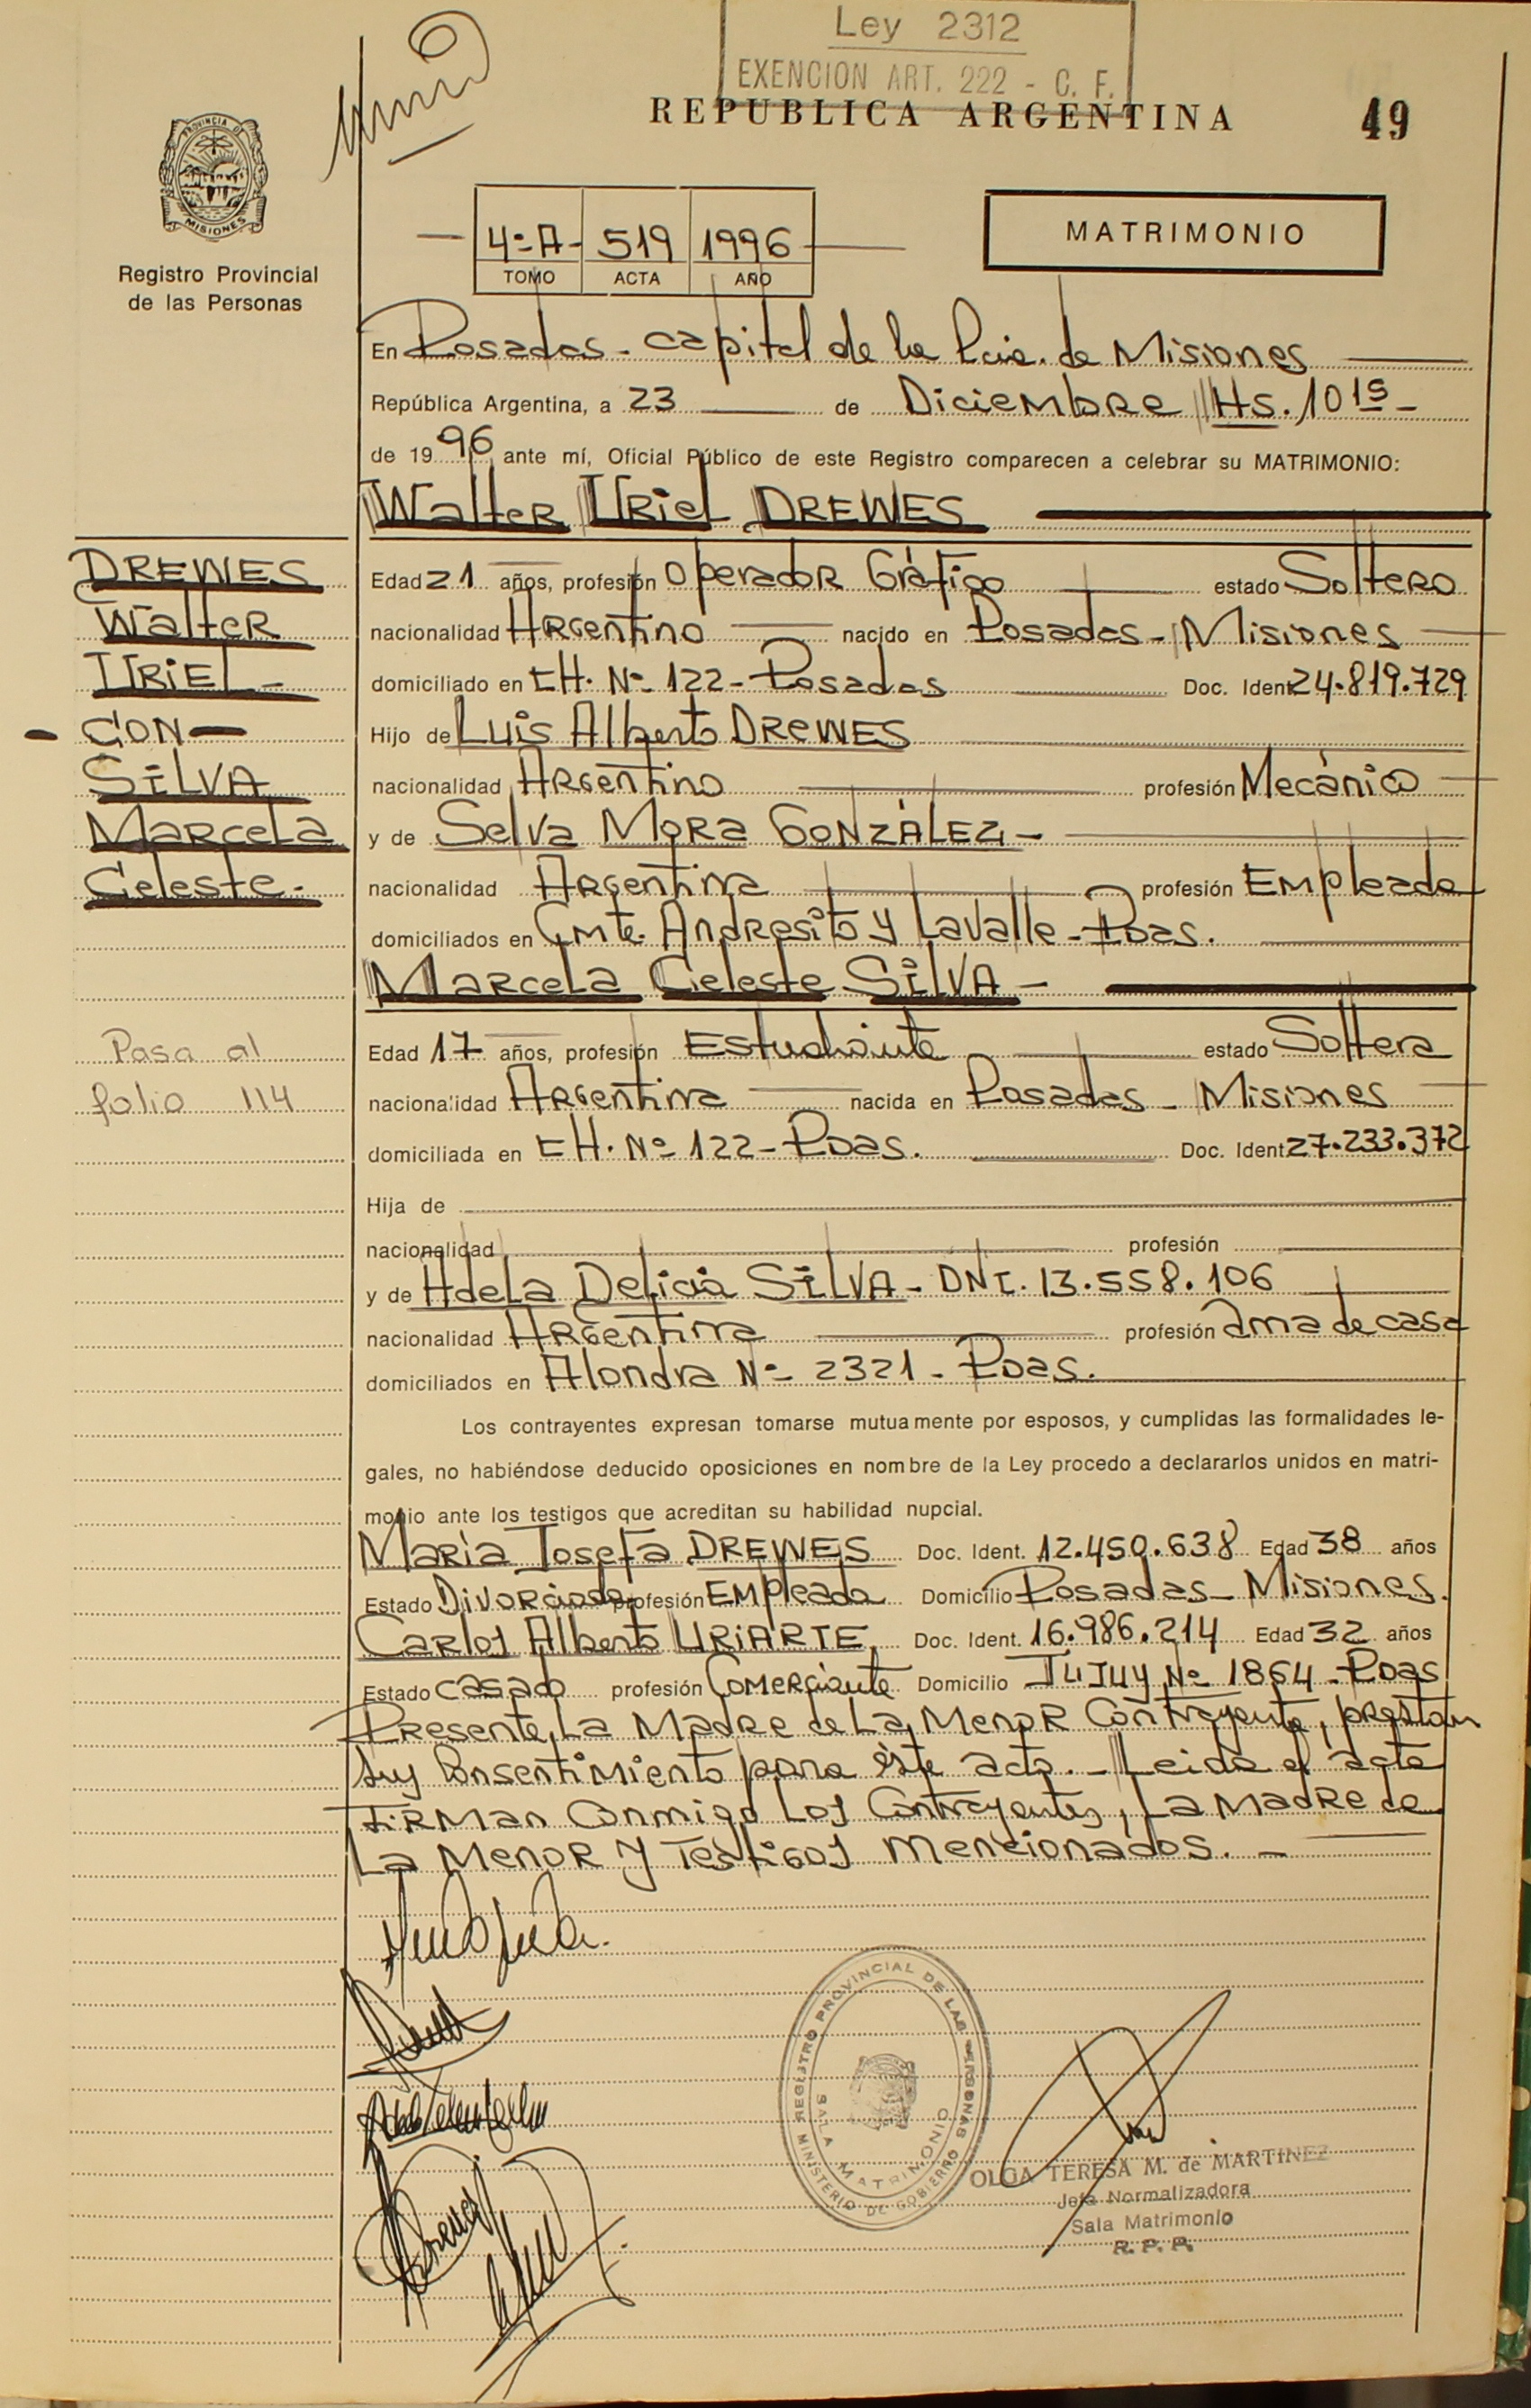 Ley 2312
EXENCION ART. 222 - C. F.
REPUBLICA ARGENTINA
49
PROVINCIA DE
MISIONES
Registro Provincial
de las Personas
4º-A- 519 1996
TOMO ACTA AÑO
MATRIMONIO
En Posadas - capital de la Pcia. de Misiones
República Argentina, a 23 de Diciembre Hs. 10 15 -
de 1996 ante mí, Oficial Público de este Registro comparecen a celebrar su MATRIMONIO:
Walter Uriel DREWES
DREWES
Walter
URIEL -
- CON -
SILVA
Marcela
Celeste.
Edad 21 años, profesión Operador Gráfico estado Soltero
nacionalidad Argentino nacido en Posadas - Misiones
domiciliado en CH. Nº 122 - Posadas Doc. Ident. 24.819.729
Hijo de Luis Alberto DREWES
nacionalidad Argentino profesión Mecánico
y de Selva Mora GONZÁLEZ -
nacionalidad Argentina profesión Empleada
domiciliados en Cmte. Andresito y Lavalle - Pdas.
Marcela Celeste SILVA -
Pasa al
folio 114
Edad 17 años, profesión Estudiante estado Soltera
nacionalidad Argentina nacida en Posadas - Misiones
domiciliada en CH. Nº 122 - Pdas. Doc. Ident. 27.233.372
Hija de
nacionalidad profesión
y de Adela Delicia SILVA - DNI. 13.558.106
nacionalidad Argentina profesión ama de casa
domiciliados en Alondra Nº 2321 - Pdas.
Los contrayentes expresan tomarse mutuamente por esposos, y cumplidas las formalidades le-
gales, no habiéndose deducido oposiciones en nombre de la Ley procedo a declararlos unidos en matri-
monio ante los testigos que acreditan su habilidad nupcial.
María Josefa DREWES Doc. Ident. 12.450.638 Edad 38 años
Estado Divorciada profesión Empleada Domicilio Posadas - Misiones.
Carlos Alberto URIARTE, Doc. Ident. 16.986.214 Edad 32 años
Estado casado profesión Comerciante Domicilio Jujuy Nº 1864 - Pdas
Presente, La Madre de La Menor Contrayente, prestan
su Consentimiento para éste acto. - Leida el acta
Firman Conmigo Los Contrayentes, La Madre de
La Menor y Testigos mencionados. -
REGISTRO PROVINCIAL DE LAS PERSONAS
SALA MATRIMONIO
MINISTERIO DE GOBIERNO
OLGA TERESA M. de MARTINEZ
Jefa Normalizadora
Sala Matrimonio
R. P. P.